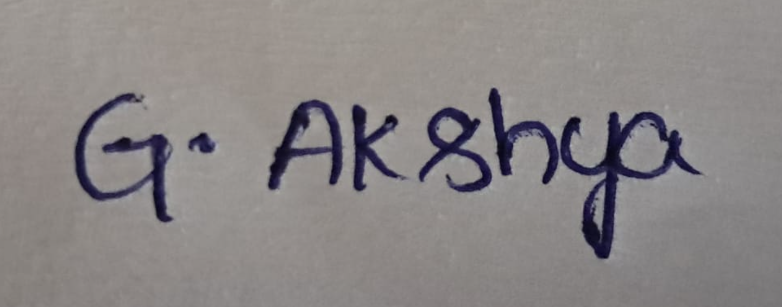 G. Akshya